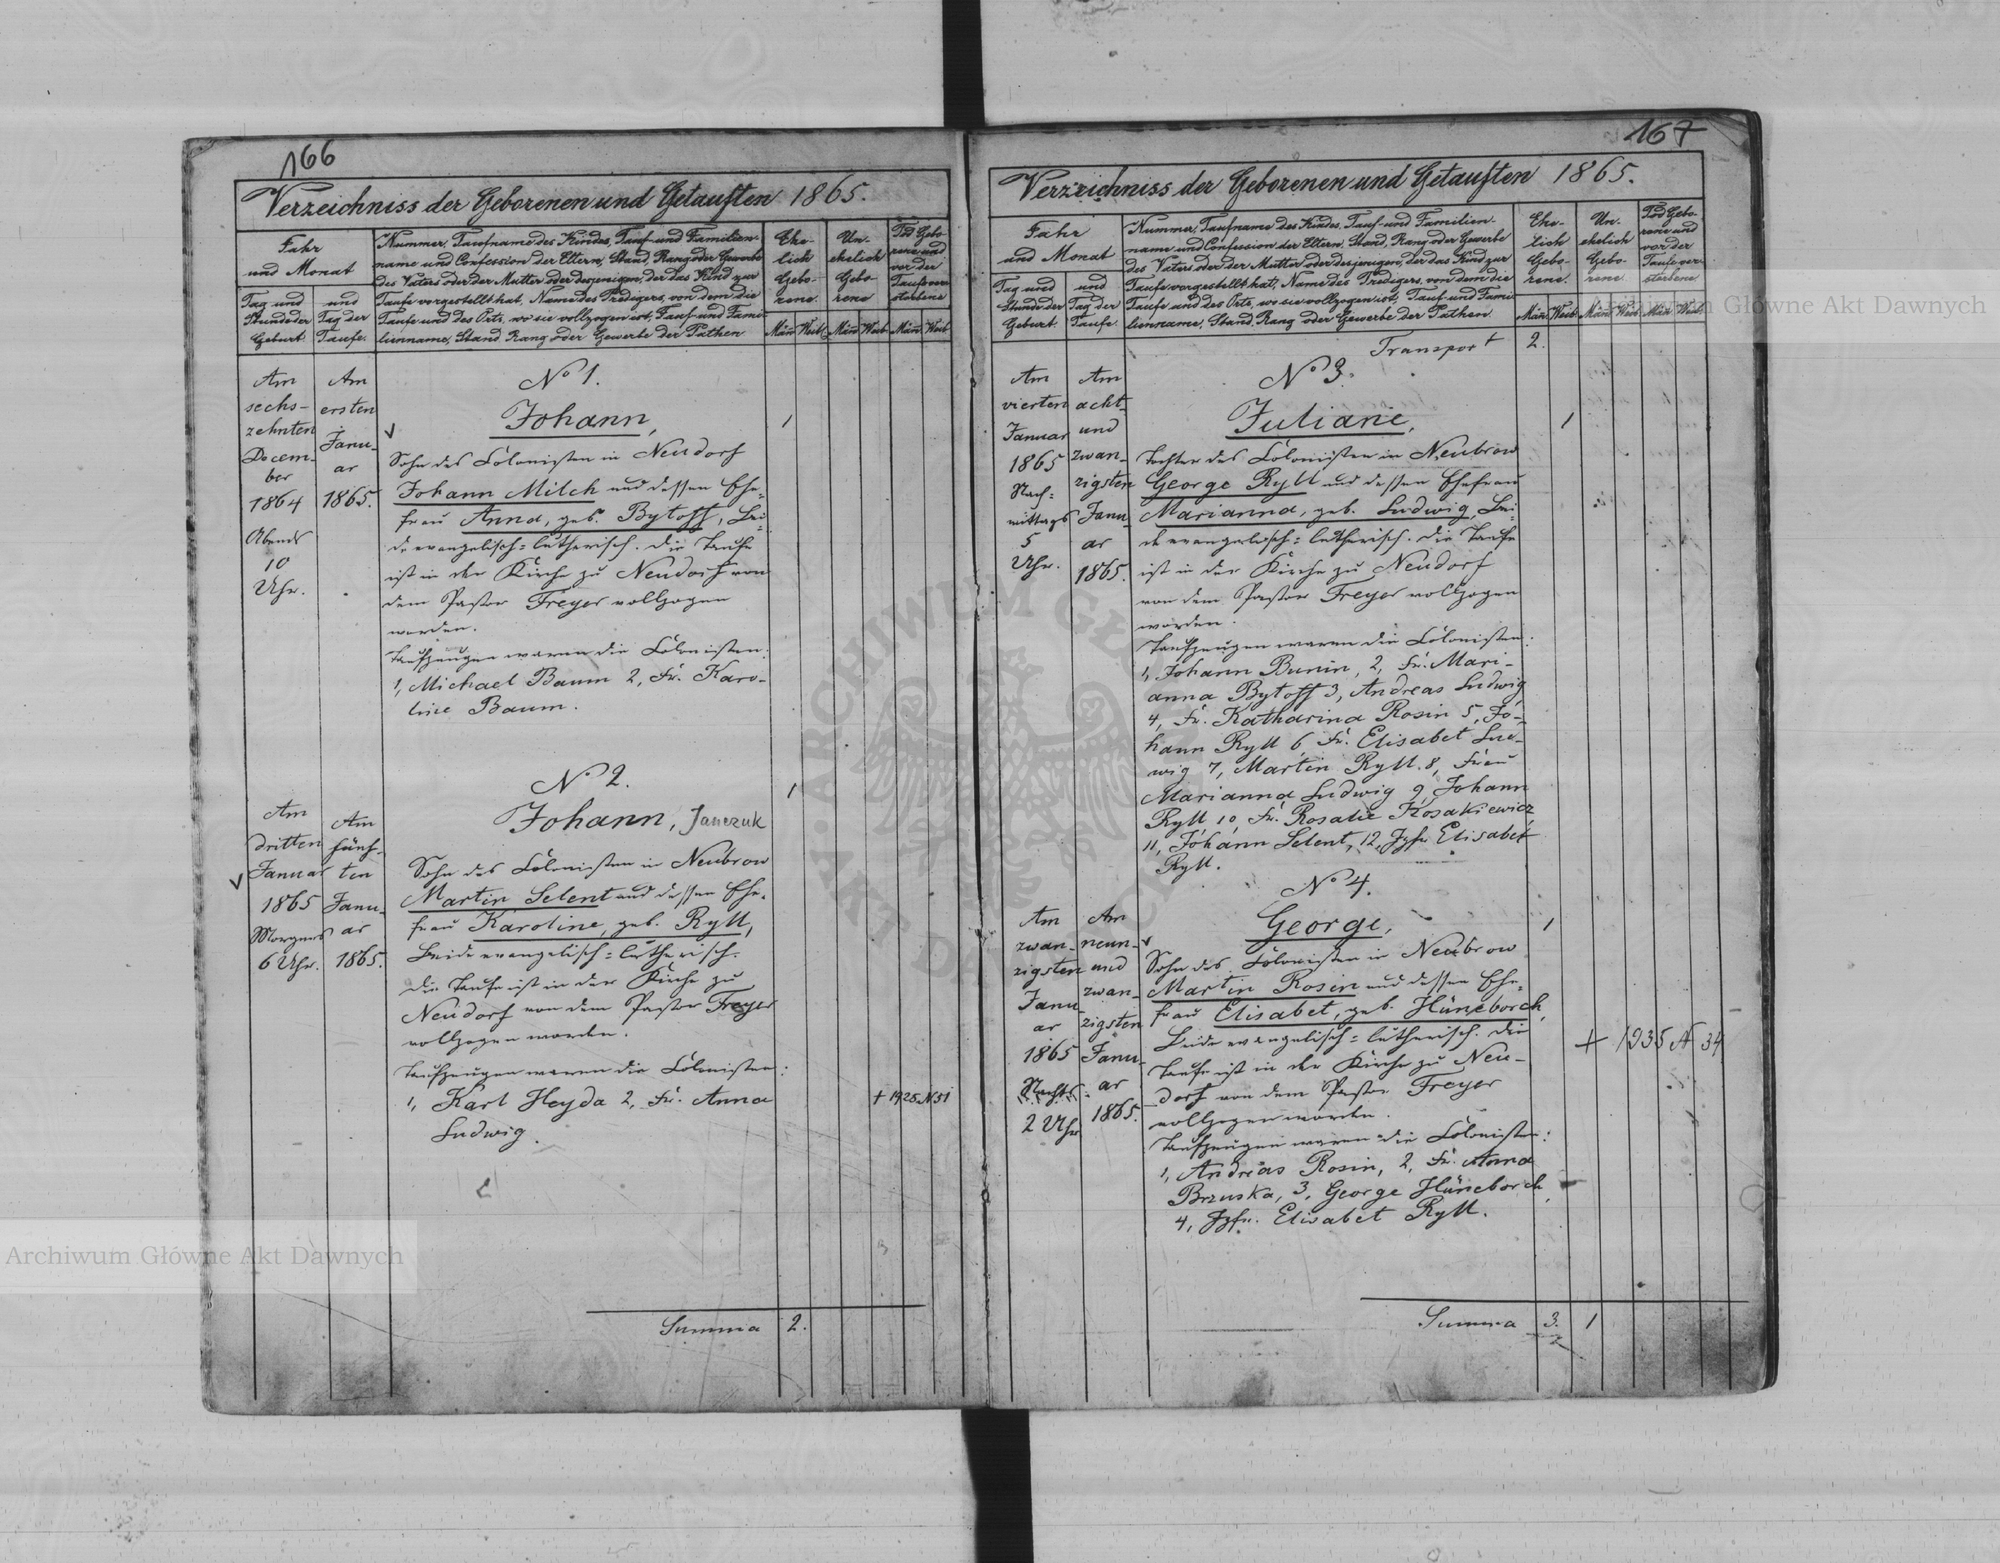 166
Verzeichniss der Geborenen und Getauften 1865.
Jahr
und Monat
Tag und
Stunde der
Geburt.
und
Tag der
Taufe.
Nummer, Taufname des Kindes, Tauf- und Familien-
name und Confession der Eltern, Stand, Rang oder Gewerbe
des Vaters oder der Mutter oder desjenigen, der das Kind zur
Taufe vorgestellt hat, Name des Predigers, von dem die
Taufe und des Orts, wo sie vollzogen ist, Tauf- und Fami-
lienname, Stand, Rang oder Gewerbe der Pathen
Ehe-
lich
Gebo-
rene.
Un-
ehelich
Gebo-
rene
Tod Gebo-
rene und
vor der
Taufe ver-
storbene
Män Weib. Män Weib. Män Weib
Am
sechs-
zehnten
Decem-
ber
1864
Abends
10
Uhr.
Am
ersten
Janu-
ar
1865.
No 1.
Johann,
Sohn des Colonisten in Neudorf
Johann Milch und dessen Ehe-
frau Anna, geb. Bytoff, Bei-
de evangelisch-lutherisch. Die Taufe
ist in der Kirche zu Neudorf von
dem Pastor Freyer vollzogen
worden.
Taufzeugen waren die Colonisten:
1, Michael Baum 2, Fr. Karo-
line Baum.
1
Am
dritten
Januar
1865
Morgens
6 Uhr.
Am
fünf-
ten
Janu-
ar
1865.
No 2.
Johann, Janczuk
Sohn des Colonisten in Neubrow
Martin Selent und dessen Ehe-
frau Karoline, geb. Ryll,
Beide evangelisch-lutherisch.
Die Taufe ist in der Kirche zu
Neudorf von dem Pastor Freyer
vollzogen worden.
Taufzeugen waren die Colonisten:
1, Karl Heyda 2, Fr. Anna
Ludwig.
1
+ 1925 N 51
Summa 2.
167
Verzeichniss der Geborenen und Getauften 1865.
Jahr
und Monat
Tag und
Stunde der
Geburt.
und
Tag der
Taufe.
Nummer, Taufname des Kindes, Tauf- und Familien-
name und Confession der Eltern, Stand, Rang oder Gewerbe
des Vaters oder der Mutter oder desjenigen, der das Kind zur
Taufe vorgestellt hat, Name des Predigers, von dem die
Taufe und des Orts, wo sie vollzogen ist, Tauf- und Fami-
lienname, Stand, Rang oder Gewerbe der Pathen.
Ehe-
lich
Gebo-
rene.
Un-
ehelich
Gebo-
rene.
Tod Gebo-
rene und
vor der
Taufe ver-
storbene.
Män Weib. Män Weib. Män Weib.
Transport 2.
Am
vierten
Januar
1865
Nach-
mittags
5
Uhr.
Am
acht-
und
zwan-
zigsten
Janu-
ar
1865.
No 3.
Juliane,
Tochter des Colonisten in Neubrow
George Ryll und dessen Ehefrau
Marianna, geb. Ludwig, Bei-
de evangelisch-lutherisch. Die Taufe
ist in der Kirche zu Neudorf
von dem Pastor Freyer vollzogen
worden.
Taufzeugen waren die Colonisten:
1, Johann Bunin, 2, Fr. Mari-
anna Bytoff 3, Andreas Ludwig
4, Fr. Katharina Rosin 5, Jo-
hann Ryll 6, Fr. Elisabet Lud-
wig 7, Martin Ryll. 8, Frau
Marianna Ludwig 9 Johann
Ryll 10, Fr. Rosalie Kosakiewicz
11, Johann Selent, 12, Jgfr. Elisabet
Ryll.
1
Am
zwan-
zigsten
Janu-
ar
1865
Nachts
2 Uhr
Am
neun-
und
zwan-
zigsten
Janu-
ar
1865.
No 4.
George,
Sohn des Colonisten in Neubrow
Martin Rosin und dessen Ehe-
frau Elisabet, geb. Hüneborch,
Beide evangelisch-lutherisch. Die
Taufe ist in der Kirche zu Neu-
dorf von dem Pastor Freyer
vollzogen worden.
Taufzeugen waren die Colonisten:
1, Andreas Rosin, 2, Fr. Anna
Brzuska, 3, George Hüneborch,
4, Jgfr. Elisabet Ryll.
1
+ 1935 N 34
Summa 3. 1
Archiwum Główne Akt Dawnych
Archiwum Główne Akt Dawnych